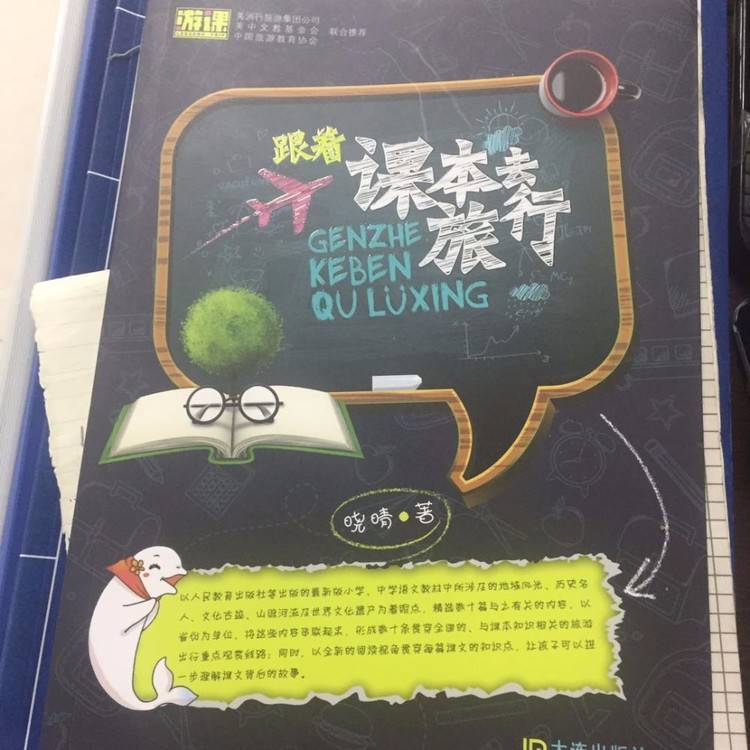 游课
美洲行旅游集团公司
美中文教基金会
中国旅游教育协会
联合推荐
跟着
课本去
旅行
GENZHE
KEBEN
QU LÜXING
晓晴●著
以人民教育出版社等出版的最新版小学、中学语文教材中所涉及的地域风光、历史名
人、文化古迹、山川河流及世界文化遗产为着眼点，精选数十篇与之有关的内容，以
省份为单位，将这些内容串联起来，形成数十条贯穿全国的、与课本知识相关的旅游
出行重点观赏线路；同时，以全新的阅读视角贯穿每篇课文的知识点，让孩子可以进
一步理解课文背后的故事。
大连出版社